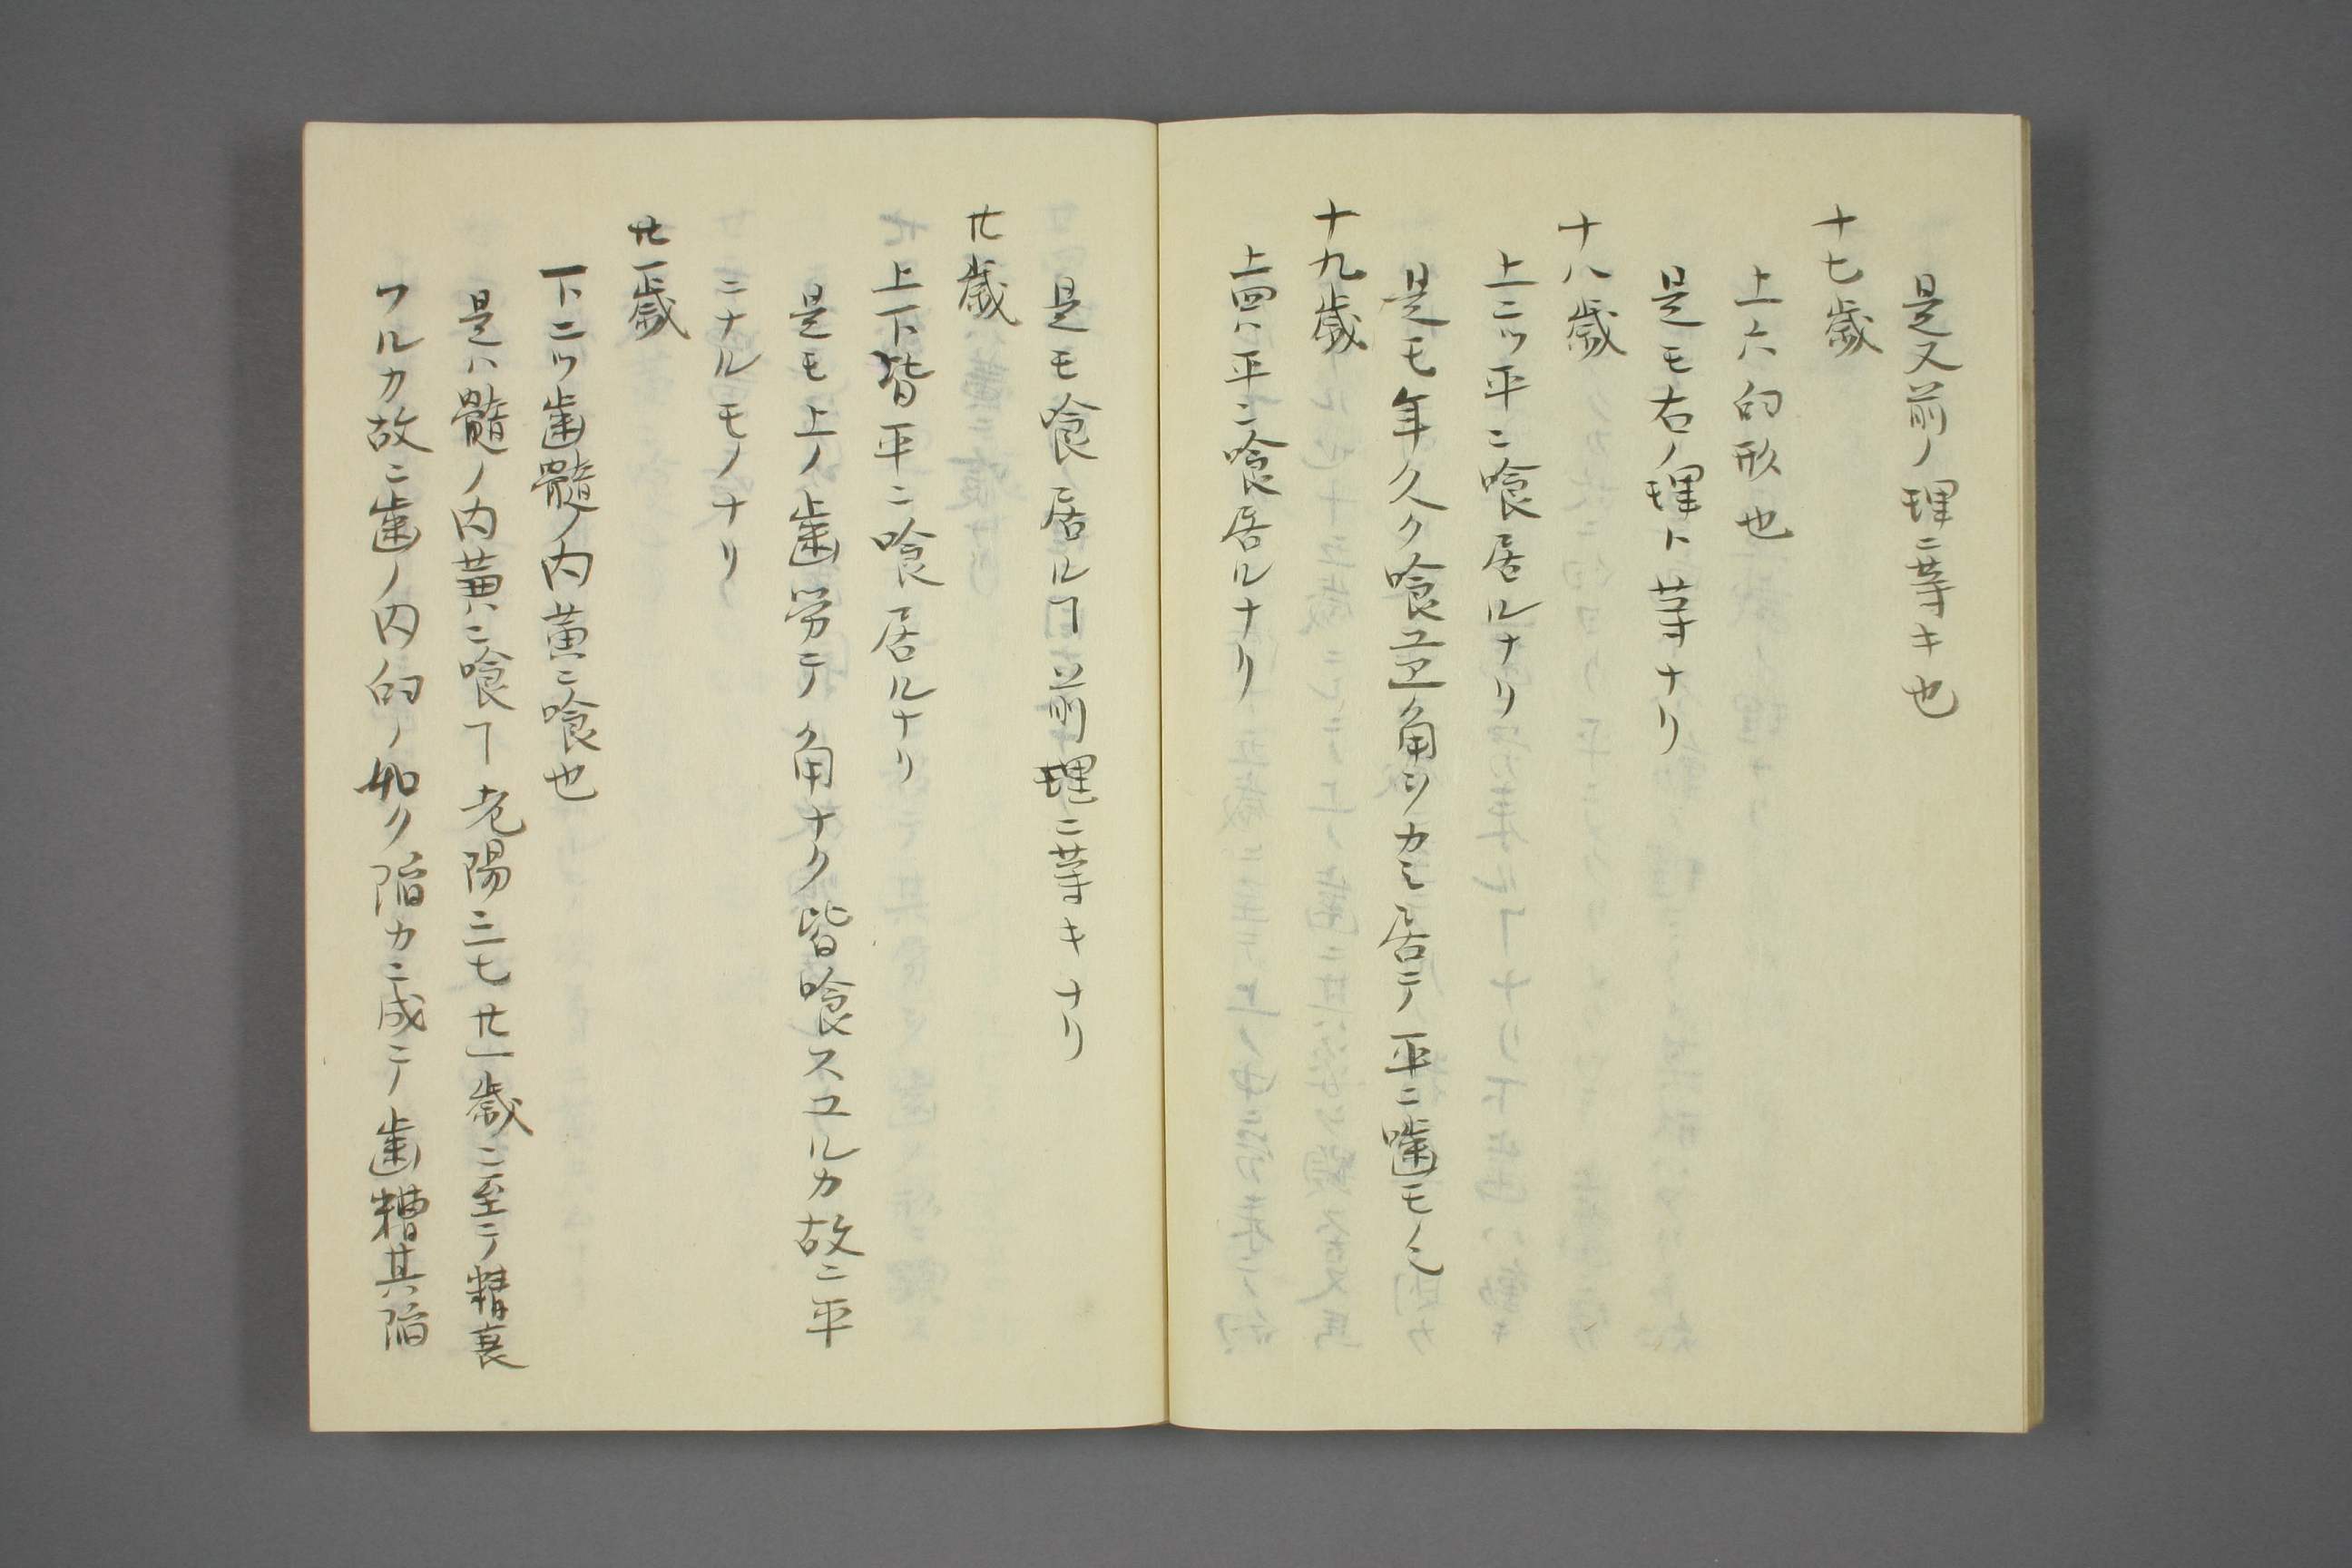 是又前ノ理ニ等キ也
十七歳
上六臼形也
是モ右ノ理ト等ナリ
十八歳
上二ッ平ニ喰居ルナリ
是モ年久ク喰ユヱ角ツカミ居テ平ニ噛モノ也
十九歳
上四ハ平ニ喰居ルナリ
是モ喰居ルヿ前理ニ等キナリ
廿歳
上下皆平ニ喰居ルナリ
是モ上ノ歯労テ角ナク皆喰スユルカ故ニ平
ニナルモノナリ
廿一歳
下二ッ歯髄ノ内黄ニ喰也
是ハ髄ノ内黄ニ喰ヿ老陽三七廿一歳ニ至テ精衰
フルカ故ニ歯ノ内臼ノ如ク陥カニ成テ歯糟其陥